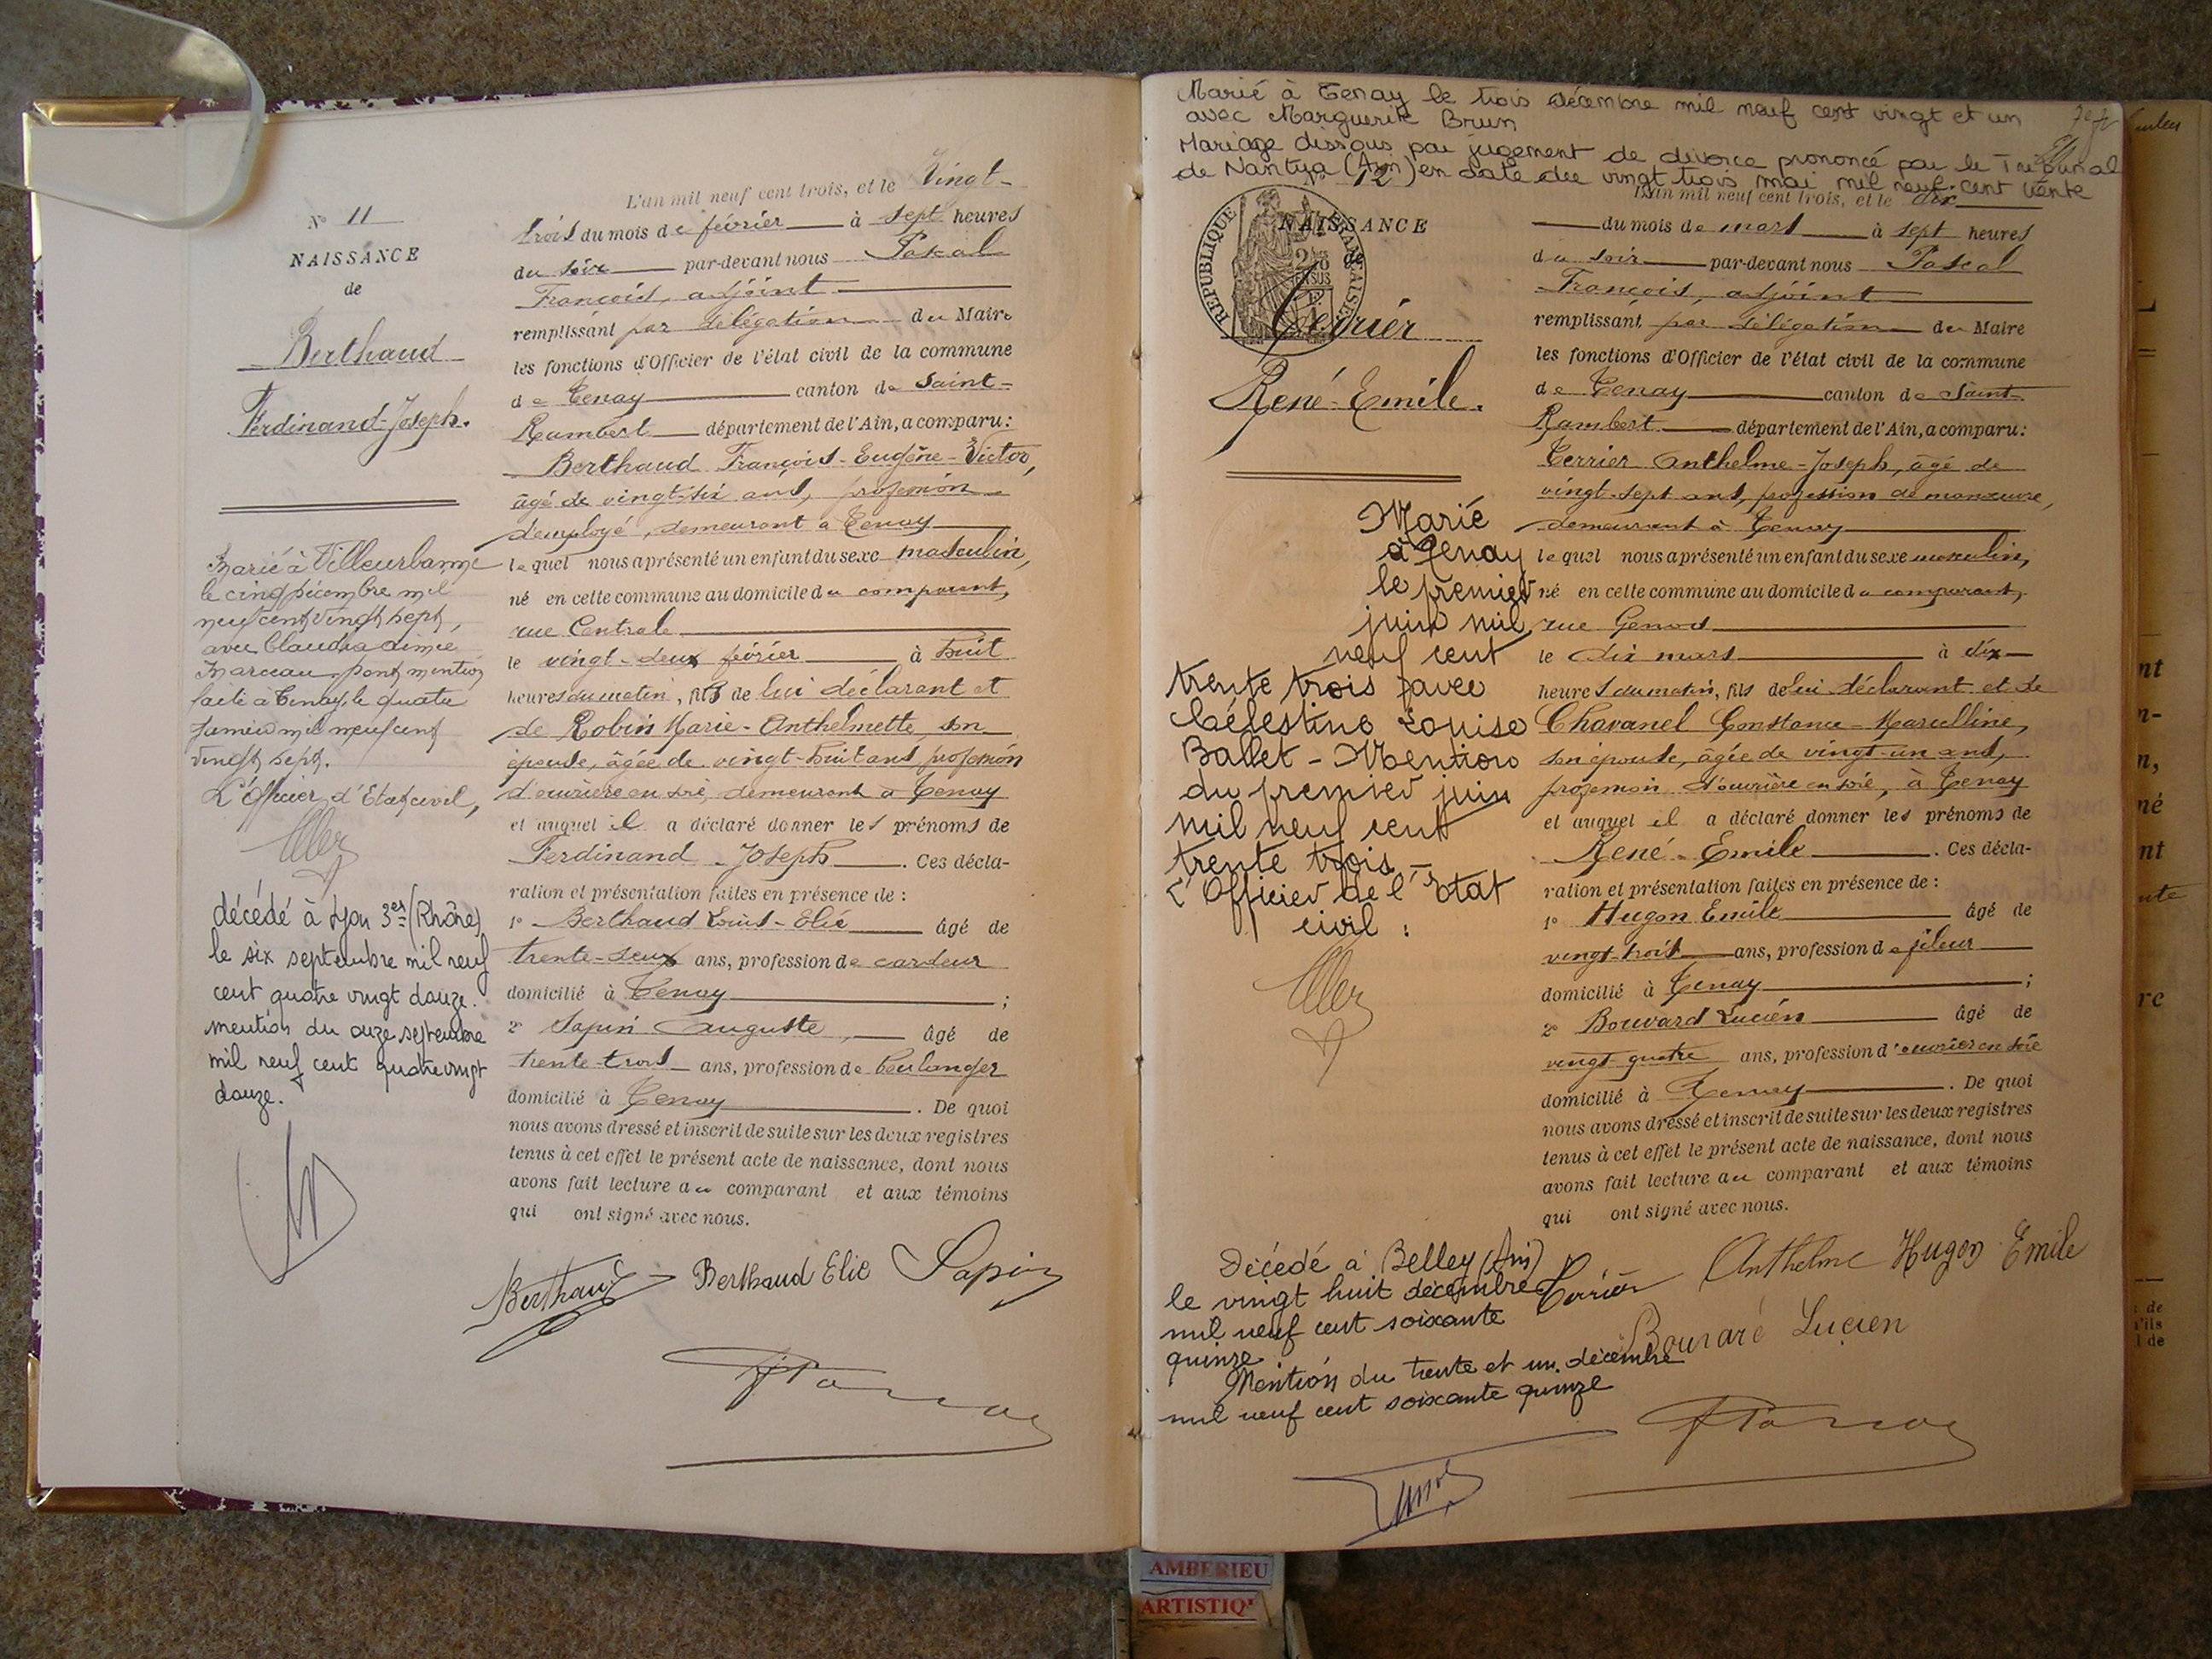 N° 11
NAISSANCE
de
Berthaud
Ferdinand-Joseph.
Marié à Villeurbanne
le cinq décembre mil
neuf cent vingt sept,
avec Claudia Aimée
Marceau
faite à Tenay, le quatre
mil neuf cent
vingt sept.
L'Officier d'Etat civil,
décédé à Lyon 3er (Rhône)
le six septembre mil neuf
cent quatre vingt douze.
mention du onze septembre
mil neuf cent quatre vingt
douze.
L'an mil neuf cent trois, et le Vingt-
trois du mois de février à sept heures
du soir par-devant nous Pascal
François, adjoint
remplissant par délégation du Maire
les fonctions d'Officier de l'état civil de la commune
de Tenay canton de Saint-
Rambert département de l'Ain, a comparu:
Berthaud François-Eugène-Victor,
âgé de vingt-six ans, profession
d'employé, demeurant à Tenay
lequel nous a présenté un enfant du sexe masculin,
né en cette commune au domicile du comparant,
rue Centrale
le vingt-deux février à huit
heures du matin, fils de lui déclarant et
de Robin Marie-Anthelmette, son
épouse, âgée de vingt-huit ans, profession
d'ouvrière en soie, demeurant à Tenay
et auquel il a déclaré donner les prénoms de
Ferdinand-Joseph. Ces décla-
ration et présentation faites en présence de :
1° Berthaud Louis-Elie âgé de
trente-deux ans, profession de cardeur
domicilié à Tenay ;
2° Sapin Auguste, âgé de
trente-trois ans, profession de boulanger
domicilié à Tenay. De quoi
nous avons dressé et inscrit de suite sur les deux registres
tenus à cet effet le présent acte de naissance, dont nous
avons fait lecture au comparant et aux témoins
qui ont signé avec nous.
Berthaud Berthaud Elie Sapin
Marié à Tenay le trois décembre mil neuf cent vingt et un
avec Marguerite Brun
Mariage dissous par jugement de divorce prononcé par le Tribunal
de Nantua (Ain) en date du vingt trois mai mil neuf cent trente
N° 12
REPUBLIQUE FRANÇAISE
NAISSANCE
de
Terrier
René-Emile.
Marié
à Tenay
le premier
juin mil
neuf cent
trente trois avec
Célestine Louise
Ballet - Mention
du premier juin
mil neuf cent
trente trois -
L'Officier de l'Etat
civil :
L'an mil neuf cent trois, et le dix
du mois de mars à sept heures
du soir par-devant nous Pascal
François, adjoint
remplissant par délégation du Maire
les fonctions d'Officier de l'état civil de la commune
de Tenay canton de Saint-
Rambert département de l'Ain, a comparu:
Terrier Anthelme-Joseph, âgé de
vingt-sept ans, profession de manœuvre,
demeurant à Tenay
lequel nous a présenté un enfant du sexe masculin,
né en cette commune au domicile du comparant,
rue Genod
le dix mars à dix
heures du matin, fils de lui déclarant et de
Chavanel Constance-Marcelline,
son épouse, âgée de vingt-un ans,
profession d'ouvrière en soie, à Tenay
et auquel il a déclaré donner les prénoms de
René-Emile. Ces décla-
ration et présentation faites en présence de :
1° Hugon Emile âgé de
vingt-trois ans, profession de fileur
domicilié à Tenay ;
2° Bouvard Lucien âgé de
vingt-quatre ans, profession d'ouvrier en soie
domicilié à Tenay. De quoi
nous avons dressé et inscrit de suite sur les deux registres
tenus à cet effet le présent acte de naissance, dont nous
avons fait lecture au comparant et aux témoins
qui ont signé avec nous.
Terrier Anthelme Hugon Emile
Bouvard Lucien
Décédé à Belley (Ain)
le vingt huit décembre
mil neuf cent soixante
quinze
Mention du trente et un décembre
mil neuf cent soixante quinze
AMBERIEU
ARTISTIQ